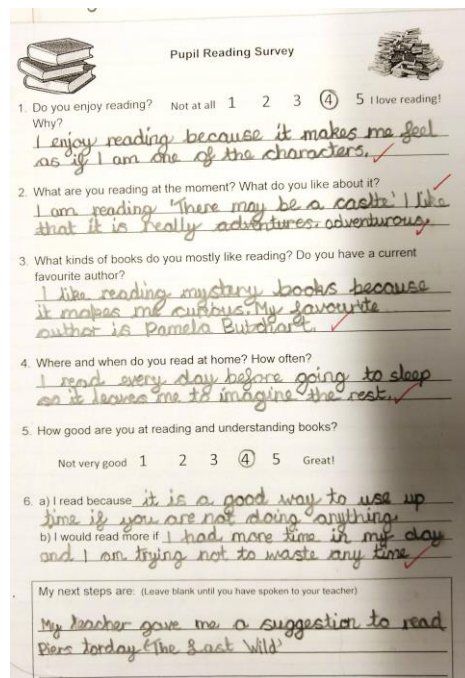 Pupil Reading Survey
1. Do you enjoy reading? Not at all 1 2 3 4 5 I love reading!
Why?
I enjoy reading because it makes me feel
as if I am one of the characters.
2. What are you reading at the moment? What do you like about it?
I am reading 'There may be a castle' I like
that it is really adventures. adventurous.
3. What kinds of books do you mostly like reading? Do you have a current
favourite author?
I like reading mystery books because
it makes me curious. My favourite
author is Pamela Butchart.
4. Where and when do you read at home? How often?
I read every day before going to sleep
so it leaves me to imagine the rest.
5. How good are you at reading and understanding books?
Not very good 1 2 3 4 5 Great!
6. a) I read because it is a good way to use up
time if you are not doing anything
b) I would read more if I had more time in my day
and I am trying not to waste any time
My next steps are: (Leave blank until you have spoken to your teacher)
My teacher gave me a suggestion to read
Piers torday 'The Last Wild'